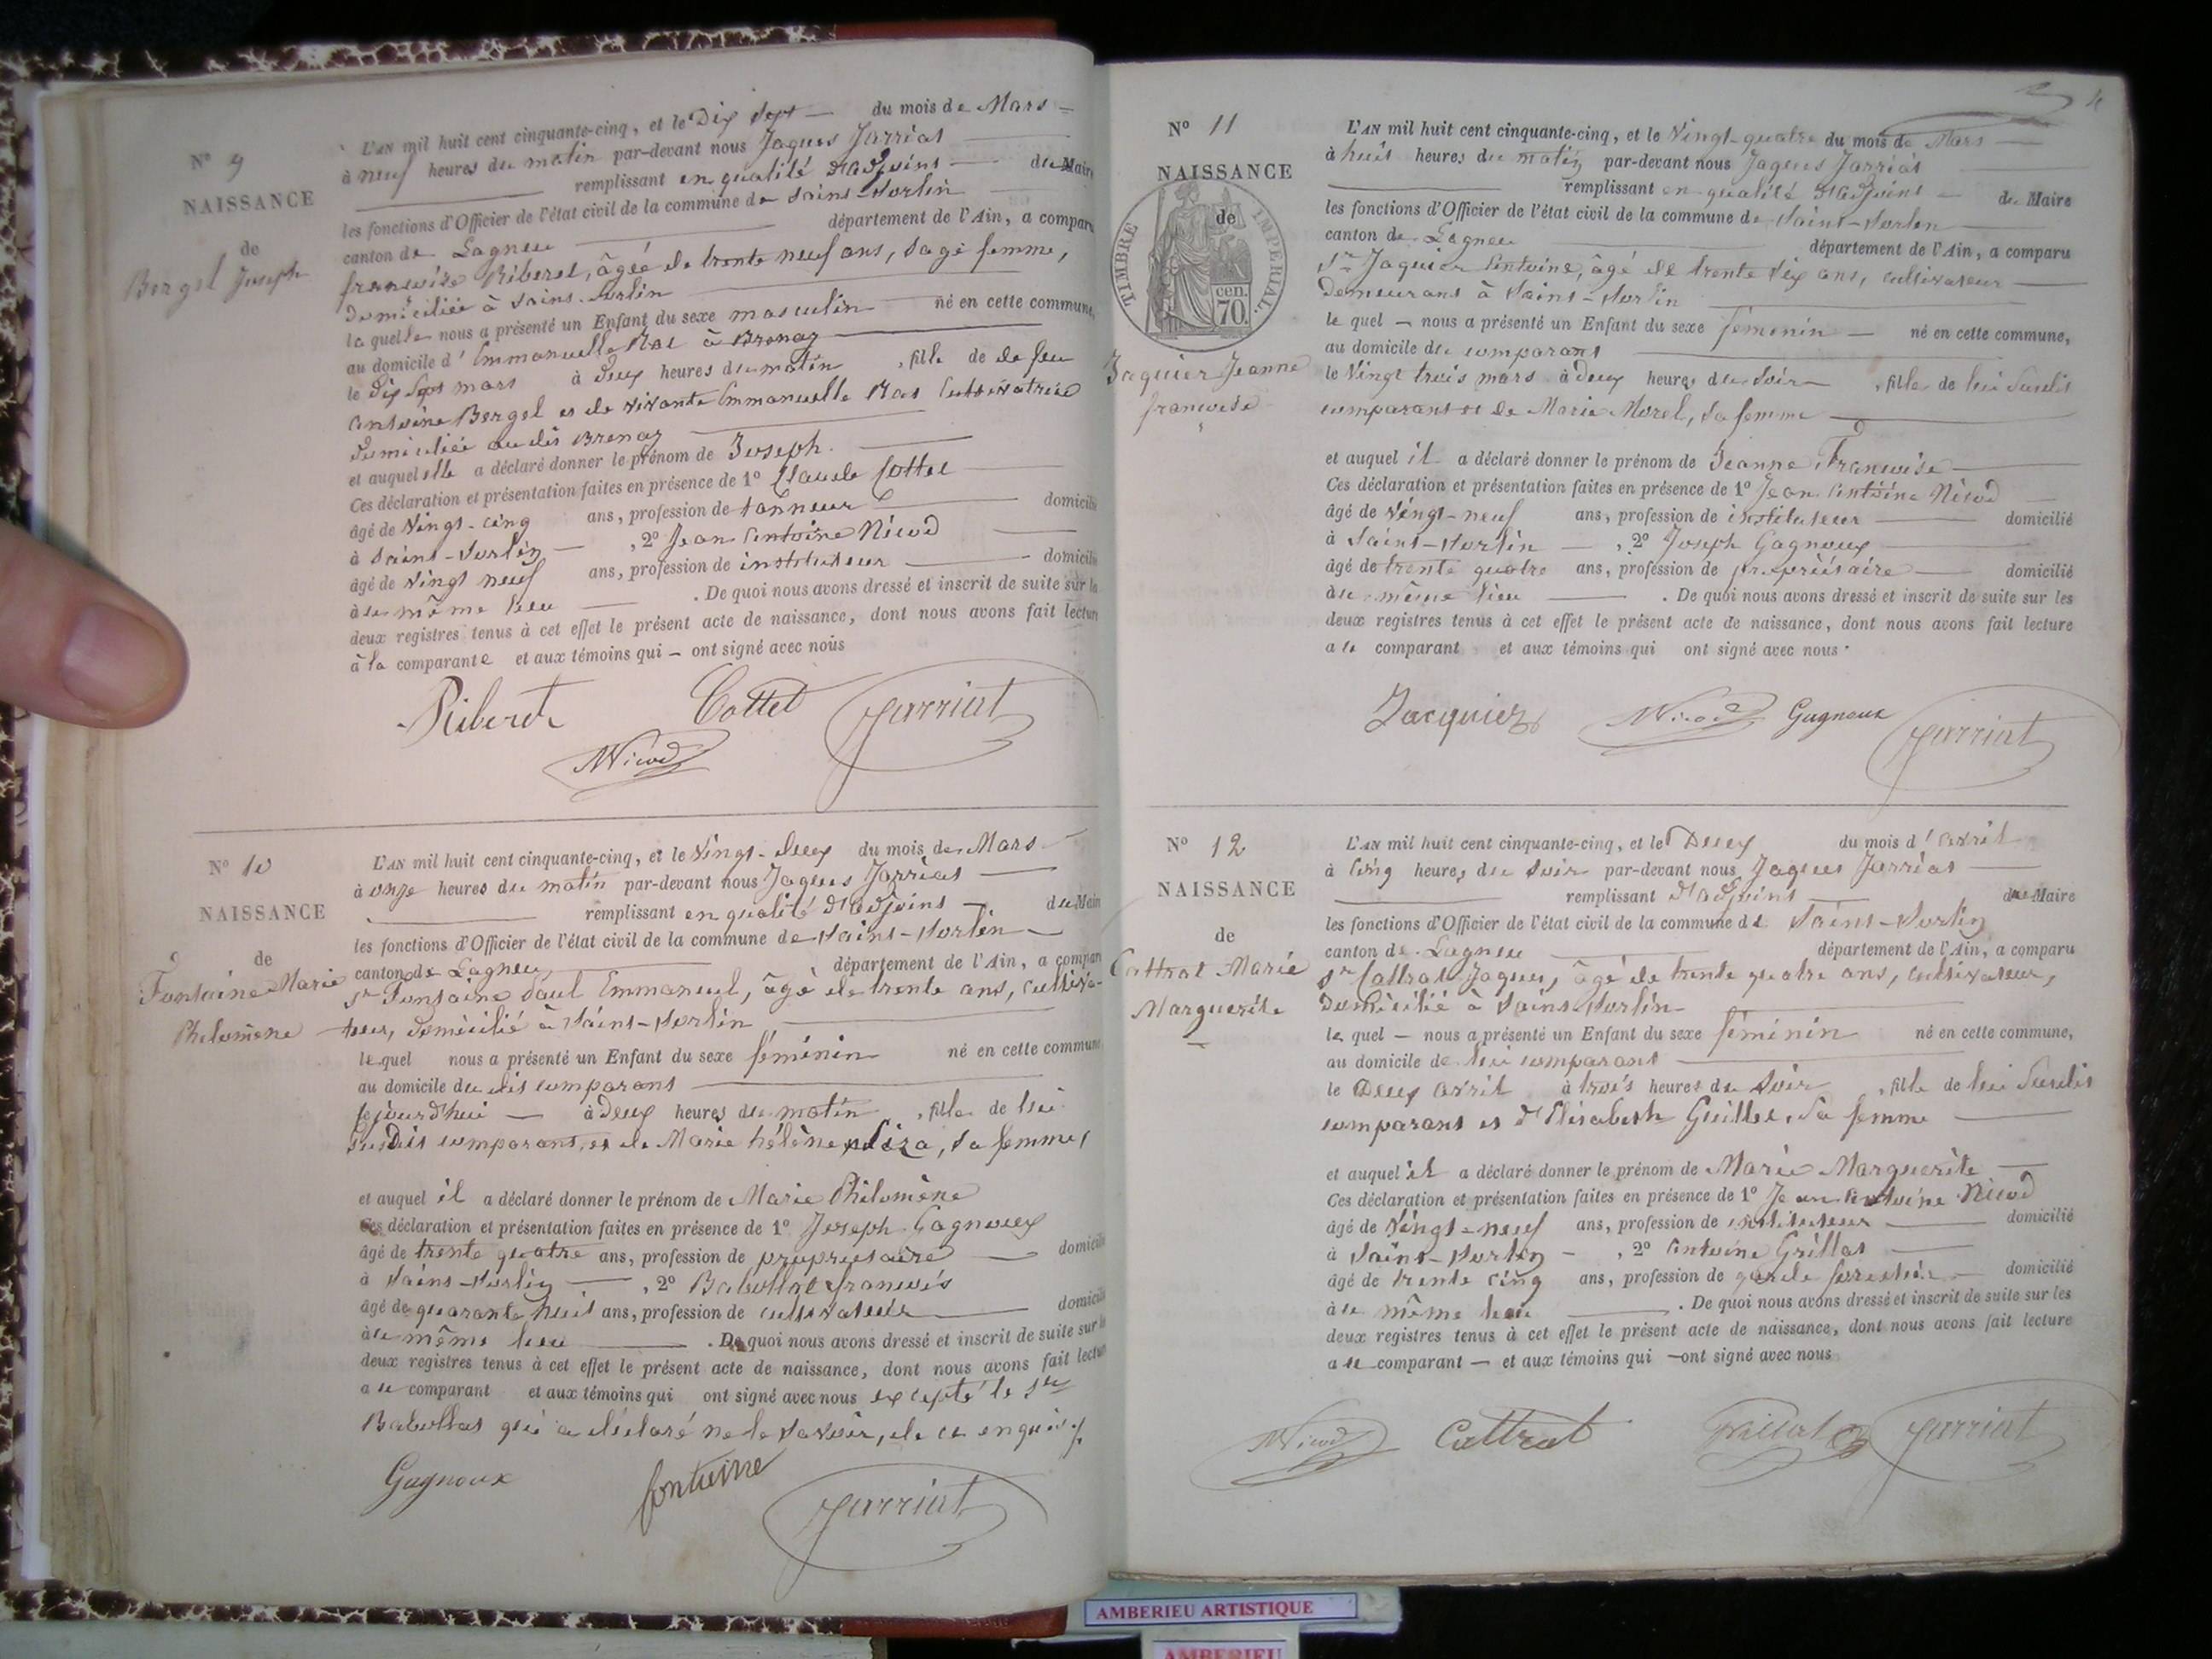 N° 9
NAISSANCE
de
Bergel Joseph
L'AN mil huit cent cinquante-cinq, et le Dix sept du mois de Mars
à neuf heures du matin par-devant nous Jaques Jarriat
remplissant en qualité d'adjoint du Maire
les fonctions d'Officier de l'état civil de la commune de Saint-Sorlin
canton de Lagneu département de l'Ain, a comparu
françoise Riberet, âgée de trente neuf ans, sage femme,
domiciliée à Saint-Sorlin
la quelle nous a présenté un Enfant du sexe masculin né en cette commune,
au domicile d'Emmanuelle Mas à Brenaz
le dix sept mars à deux heures du matin, fils de de feu
antoine Bergel et de vivante Emmanuelle Mas Cultivatrice
domiciliée audit Brenaz
et auquel elle a déclaré donner le prénom de Joseph.
Ces déclaration et présentation faites en présence de 1° Claude Cottet
âgé de Vingt-cinq ans, profession de tanneur domicilié
à Saint-Sorlin, 2° Jean antoine Nicod
âgé de Vingt neuf ans, profession de instituteur domicilié
à du même lieu. De quoi nous avons dressé et inscrit de suite sur les
deux registres tenus à cet effet le présent acte de naissance, dont nous avons fait lecture
à la comparante et aux témoins qui ont signé avec nous
Riberet Cottet Jarriat
Nicod
N° 10
NAISSANCE
de
Fontaine Marie
Philomène
L'AN mil huit cent cinquante-cinq, et le Vingt-deux du mois de Mars
à onze heures du matin par-devant nous Jaques Jarriat
remplissant en qualité d'adjoint du Maire
les fonctions d'Officier de l'état civil de la commune de Saint-Sorlin
canton de Lagneu département de l'Ain, a comparu
Sr Fontaine Paul Emmanuel, âgé de trente ans, cultiva-
teur, domicilié à Saint-Sorlin
le quel nous a présenté un Enfant du sexe féminin né en cette commune
au domicile du dit comparant
cejourd'hui à deux heures du matin, fille de lui
susdit comparant, et de Marie hélène, sa femme,
et auquel il a déclaré donner le prénom de Marie Philomène
Ces déclaration et présentation faites en présence de 1° Joseph Gagnoux
âgé de trente quatre ans, profession de propriétaire domicilié
à Saint-Sorlin, 2° Babollat françois
âgé de quarante huit ans, profession de cultivateur domicilié
à du même lieu. De quoi nous avons dressé et inscrit de suite sur les
deux registres tenus à cet effet le présent acte de naissance, dont nous avons fait lecture
a u comparant et aux témoins qui ont signé avec nous excepté le Sr
Babollat qui a déclaré ne le savoir, de ce enquis
Gagnoux fontaine Jarriat
4
N° 11
NAISSANCE
de
TIMBRE IMPERIAL.
70. cen.
Jaquier Jeanne
françoise
L'AN mil huit cent cinquante-cinq, et le Vingt-quatre du mois de Mars
à huit heures du matin par-devant nous Jaques Jarriat
remplissant en qualité d'adjoint du Maire
les fonctions d'Officier de l'état civil de la commune de Saint-Sorlin
canton de Lagneu département de l'Ain, a comparu
Sr Jaquier antoine, âgé de trente six ans, cultivateur
Demeurant à Saint-Sorlin
le quel nous a présenté un Enfant du sexe féminin né en cette commune,
au domicile du comparant
le Vingt trois mars à deux heures du soir, fille de lui susdit
comparant et de Marie Morel, sa femme
et auquel il a déclaré donner le prénom de Jeanne Françoise
Ces déclaration et présentation faites en présence de 1° Jean antoine Nicod
âgé de Vingt-neuf ans, profession de instituteur domicilié
à Saint-Sorlin, 2° Joseph Gagnoux
âgé de trente quatre ans, profession de propriétaire domicilié
à du même lieu. De quoi nous avons dressé et inscrit de suite sur les
deux registres tenus à cet effet le présent acte de naissance, dont nous avons fait lecture
a u comparant et aux témoins qui ont signé avec nous
Jacquier Nicod Gagnoux Jarriat
N° 12
NAISSANCE
de
Cattrat Marie
Marguerite
L'AN mil huit cent cinquante-cinq, et le Deux du mois d'avril
à Cinq heures du soir par-devant nous Jaques Jarriat
remplissant d'adjoint du Maire
les fonctions d'Officier de l'état civil de la commune de Saint-Sorlin
canton de Lagneu département de l'Ain, a comparu
Sr Cattrat Jaques, âgé de trente quatre ans, cultivateur,
Domicilié à Saint-Sorlin
le quel nous a présenté un Enfant du sexe féminin né en cette commune,
au domicile de lui comparant
le Deux avril à trois heures du soir, fille de lui susdit
comparant et d'Elisabeth Guillet, sa femme
et auquel il a déclaré donner le prénom de Marie Marguerite
Ces déclaration et présentation faites en présence de 1° Jean antoine Nicod
âgé de Vingt-neuf ans, profession de instituteur domicilié
à Saint-Sorlin, 2° antoine Grillat
âgé de trente cinq ans, profession de garde forestier domicilié
à du même lieu. De quoi nous avons dressé et inscrit de suite sur les
deux registres tenus à cet effet le présent acte de naissance, dont nous avons fait lecture
a u comparant et aux témoins qui ont signé avec nous
Nicod Cattrat Jarriat
AMBERIEU ARTISTIQUE
AMBERIEU